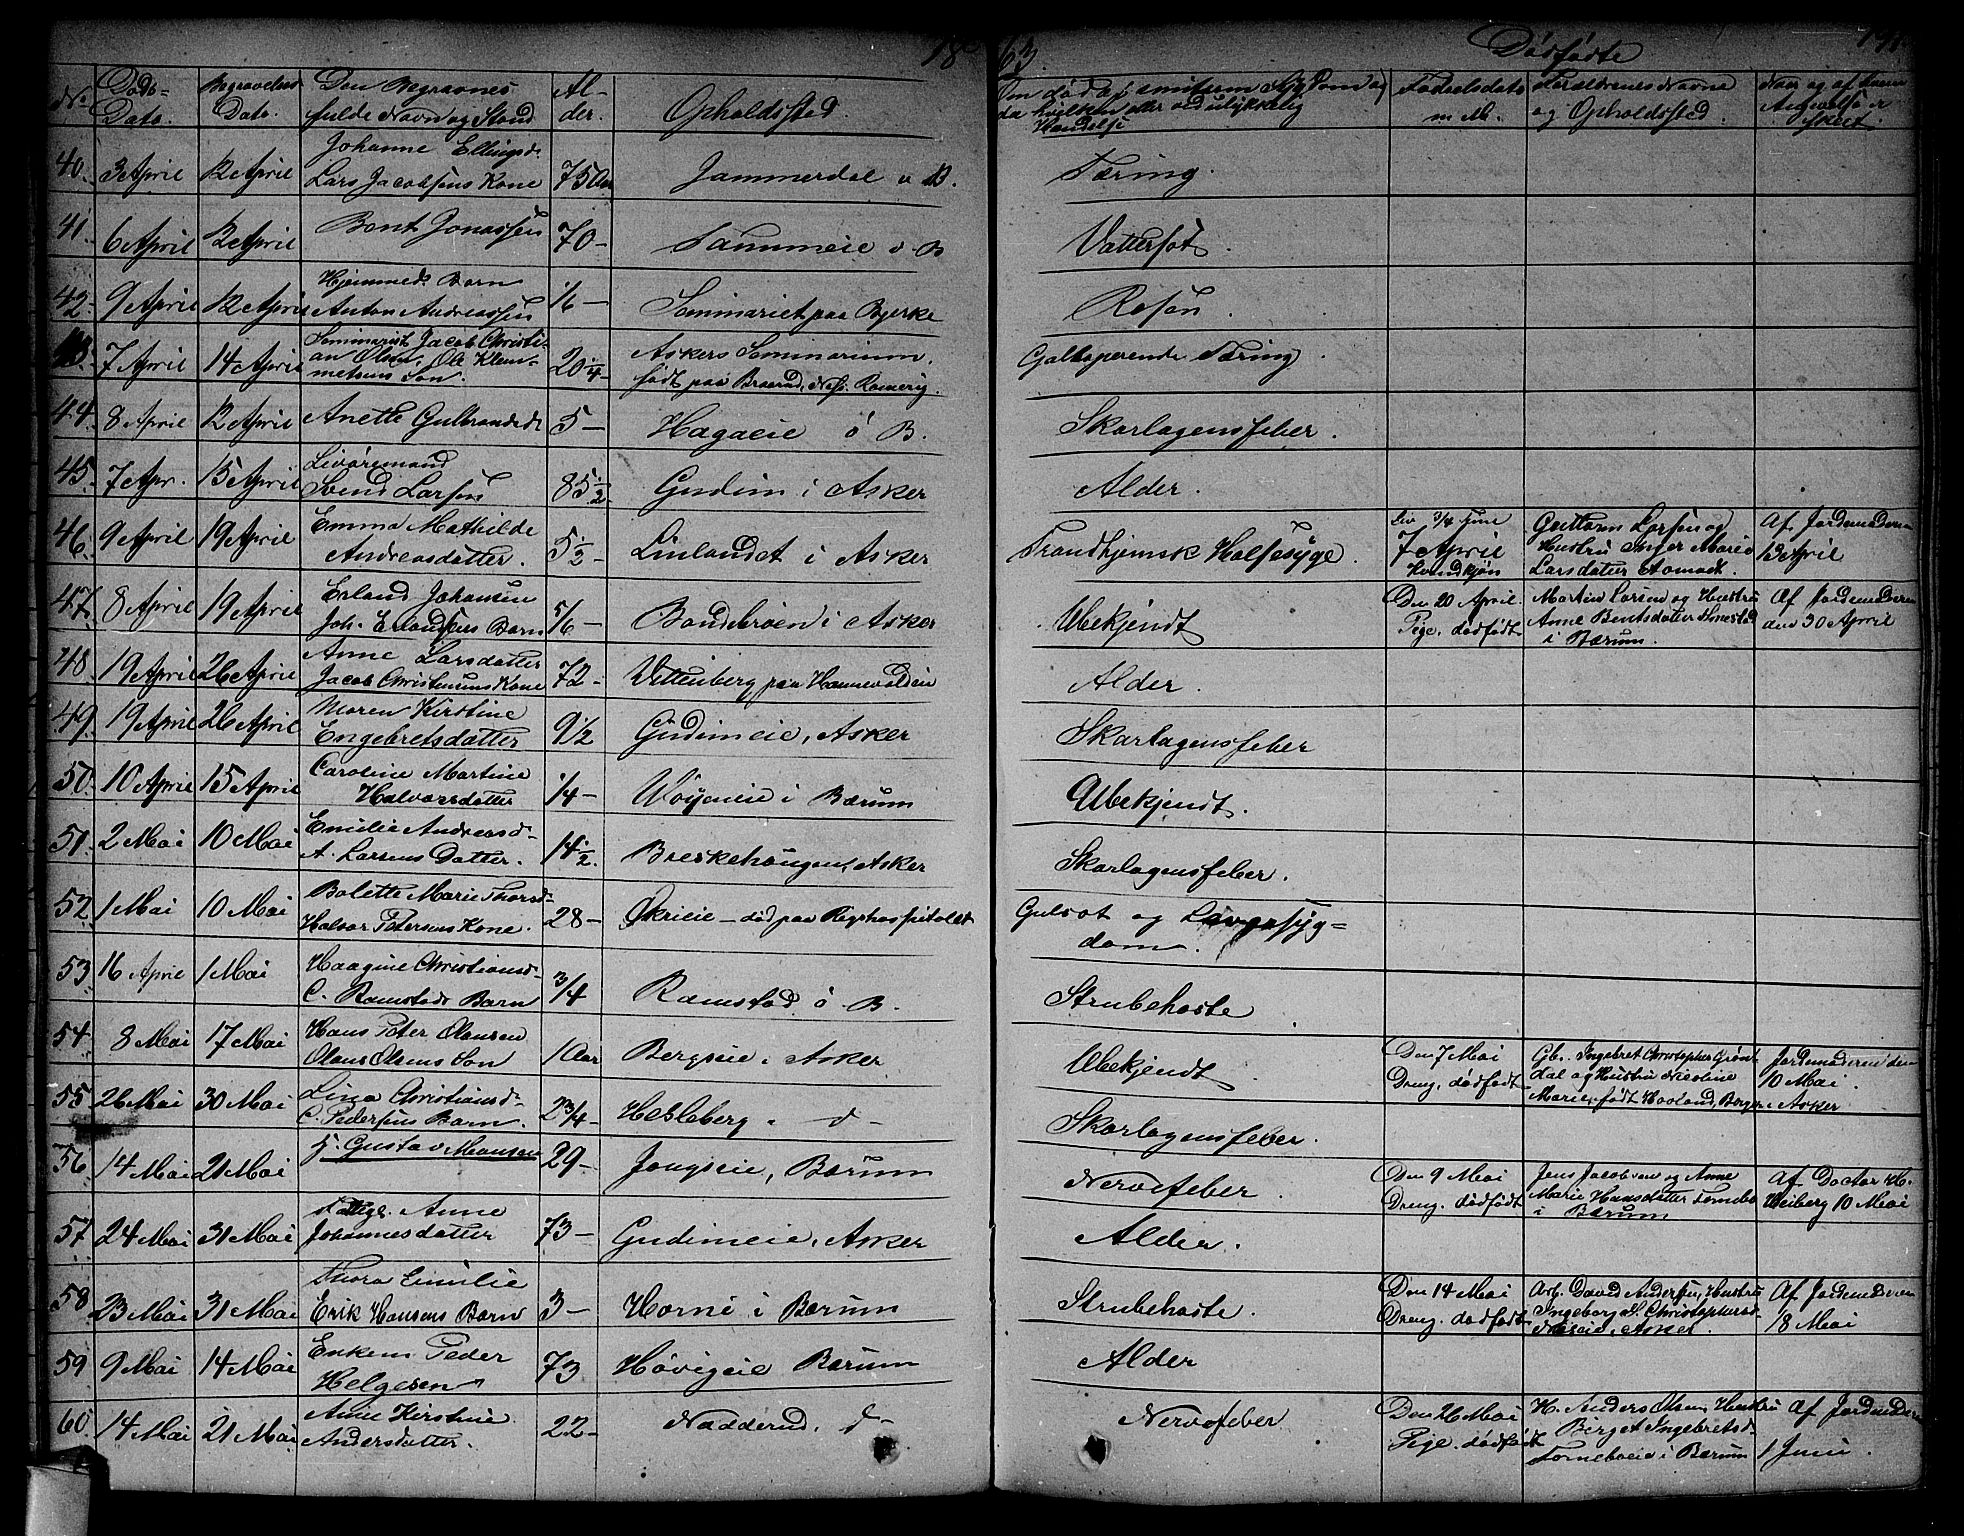 18 63. Dødfødte
No. Døds- Dato. Begravelses Dato. Den Begravnes fulde Navn og Stand Al- der. Opholdssted. Om død af smitsom Sygdom og da hvilken eller ved ulykkelig Hændelse Fødselsdato m. M. Forældrenes Navne og Opholdssted. Naar og af hvem Anmeldelse er skeet.
40. 3 April 12 April Johanne Ellingsd.
Lars Jacobsens Kone 75 Aar Jammerdal i B. Tæring.
41. 6 April 12 April Bent Jonassen 70 - Tanumeie i B Vattersot.
42. 9 April 12 April Hjemmedr. Barn
Anton Andreassen 1/6 - Seminariet paa Bjerke Rosen.
43. 7 April 14 April Seminarist Jacob Christi-
an Olsen, Ole Klem-
metsens Søn. 20 1/4 - Askers Seminarium.
født paa Braarud, Næs. Romerig. Galloperende Tæring.
44. 8 April 12 April Anette Gulbrandsdr 5 - Hagaeie i B. Skarlagensfeber.
45. 7 Apr. 15 April Livøremand
Svend Larsen 85 1/2 Gudim i Asker Alder.
46. 9 April 19 April Emma Mathilde
Andreasdatter. 5 1/2 Linlandet i Asker Trondhjemsk Halsesyge.
Liv 3/4 Time
7 April
Kvindkjøn Guttorm Larsen og
Hustru Inger Marie
Larsdatter Aamodt. Af Jordemoderen
13 April
47. 8 April 19 April Erland Johansen
Joh. Erlandsens Barn 5/6 - Bondebroen i Asker Ubekjendt
Den 20 April.
Pige, dødfødt Martin Larsen og Hustru
Anne Bentsdatter
i Bærum. Af Jordemoderen
den 30 April
48 19 April 26 April Anne Larsdatter
Jacob Christensens Kone 72 - Vittenberg paa Hannevoldeie Alder.
49. 19 April 26 April Maren Kirstine
Engebretsdatter 9 1/2 Gudimeie, Asker Skarlagensfeber
50. 10 April 15 April Caroline Martine
Halvorsdatter 1/4 - Vøyeneie i Bærum Ubekjendt.
51. 2 Mai 10 Mai Emilie Andreasd-
A. Larsens Datter. 14 1/2. Breskehaugen, Asker Skarlagensfeber.
52. 1 Mai 10 Mai Bolette Marie Thorsd-
Halvor Petersens Kone. 28 - Økrieie - død paa Rigshospitalet Gulsot og Leversyg-
dom.
53 16 April 1 Mai Haagine Christiansd-
C. Ramstads Barn 3/4 Ramstad i B. Strubehoste
54. 8 Mai 17 Mai Hans Peter Olausen
Olaus Olsens Søn 1 Aar Bergseie i Asker Ubekjendt.
Den 7 Mai
Dreng, dødfødt Gb. Ingebret Christopher Grønt
dal og Hustru Nicoline
Marie, født Haaland, Berger i Asker Jordemoderen den
10 Mai.
55 26 Mai 30 Mai Lina Christiansd-
C. Pedersens Barn. 2 3/4 - Hesleberg i d - Skarlagensfeber.
56. 14 Mai 21 Mai F. Gustav Hansen 29 - Jongseie, Bærum Nervefeber.
Den 9 Mai
Dreng, dødfødt Jens Jacobsen og Anne
Marie Hansdatter
i Bærum Af Doctor H.
Heiberg 10 Mai
57 24 Mai 31 Mai Fattigl. Anne
Johannesdatter 73 - Gudimeie, Asker Alder.
58 23 Mai 31 Mai Thora Emilie
Erik Hansens Barn 3 - Horni i Bærum Strubehoste.
Den 14 Mai
Dreng, dødfødt Arb. David Andersen, Hustru
Ingeborg M. Christophersd.
Næseie, Asker. Af Jordemoderen
18 Mai
59 9 Mai 14 Mai Enkem. Peder
Helgesen 73 Høvigeie Bærum Alder
60. 14 Mai 21 Mai Anne Kirstine
Andersdatter. 22 - Nadderud. d - Nervefeber
Den 26 Mai
Pige, dødfødt H. Anders Olsen, Hustru
Birget Ingebretsd.
Torneboeie i Bærum Af Jordemoderen
1 Juni.